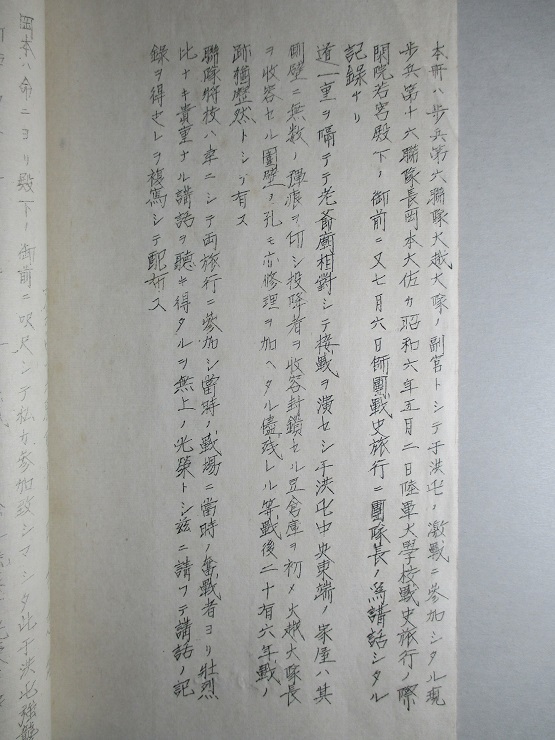 本冊ハ歩兵第六聯隊大越大隊ノ副官トシテ于洪屯ノ激戰ニ參加シタル現
歩兵第十六聯隊長岡本大佐カ昭和六年五月二日陸軍大學校戰史旅行ノ際
閑院若宮殿下ノ御前ニ又七月六日師團戰史旅行ニ團隊長ノ爲講話シタル
記録ナリ
道一重ヲ隔テテ老爺廟相對シテ接戰ヲ演セシ于洪屯中央東端ノ家屋ハ其
側壁ニ無數ノ彈痕ヲ印シ投降者ヲ收容封鎖セル豆倉庫ヲ初メ大越大隊長
ヲ收容セル圍壁ノ孔モ亦修理ヲ加ヘタル儘残レル等戰後二十有六年戰ノ
跡猶歴然トシテ有ス
聯隊將校ハ幸ニシテ両旅行ニ參加シ當時ノ戰場ニ當時ノ奮戰者ヨリ壮烈
比ナキ貴重ナル講話ヲ聽キ得タルヲ無上ノ光榮トシ茲ニ請フテ講話ノ記
録ヲ得之レヲ複寫シテ配布ス
岡本ハ命ニヨリ殿下ノ御前ニ咫尺シテ私カ參加致シマシタ此于洪屯